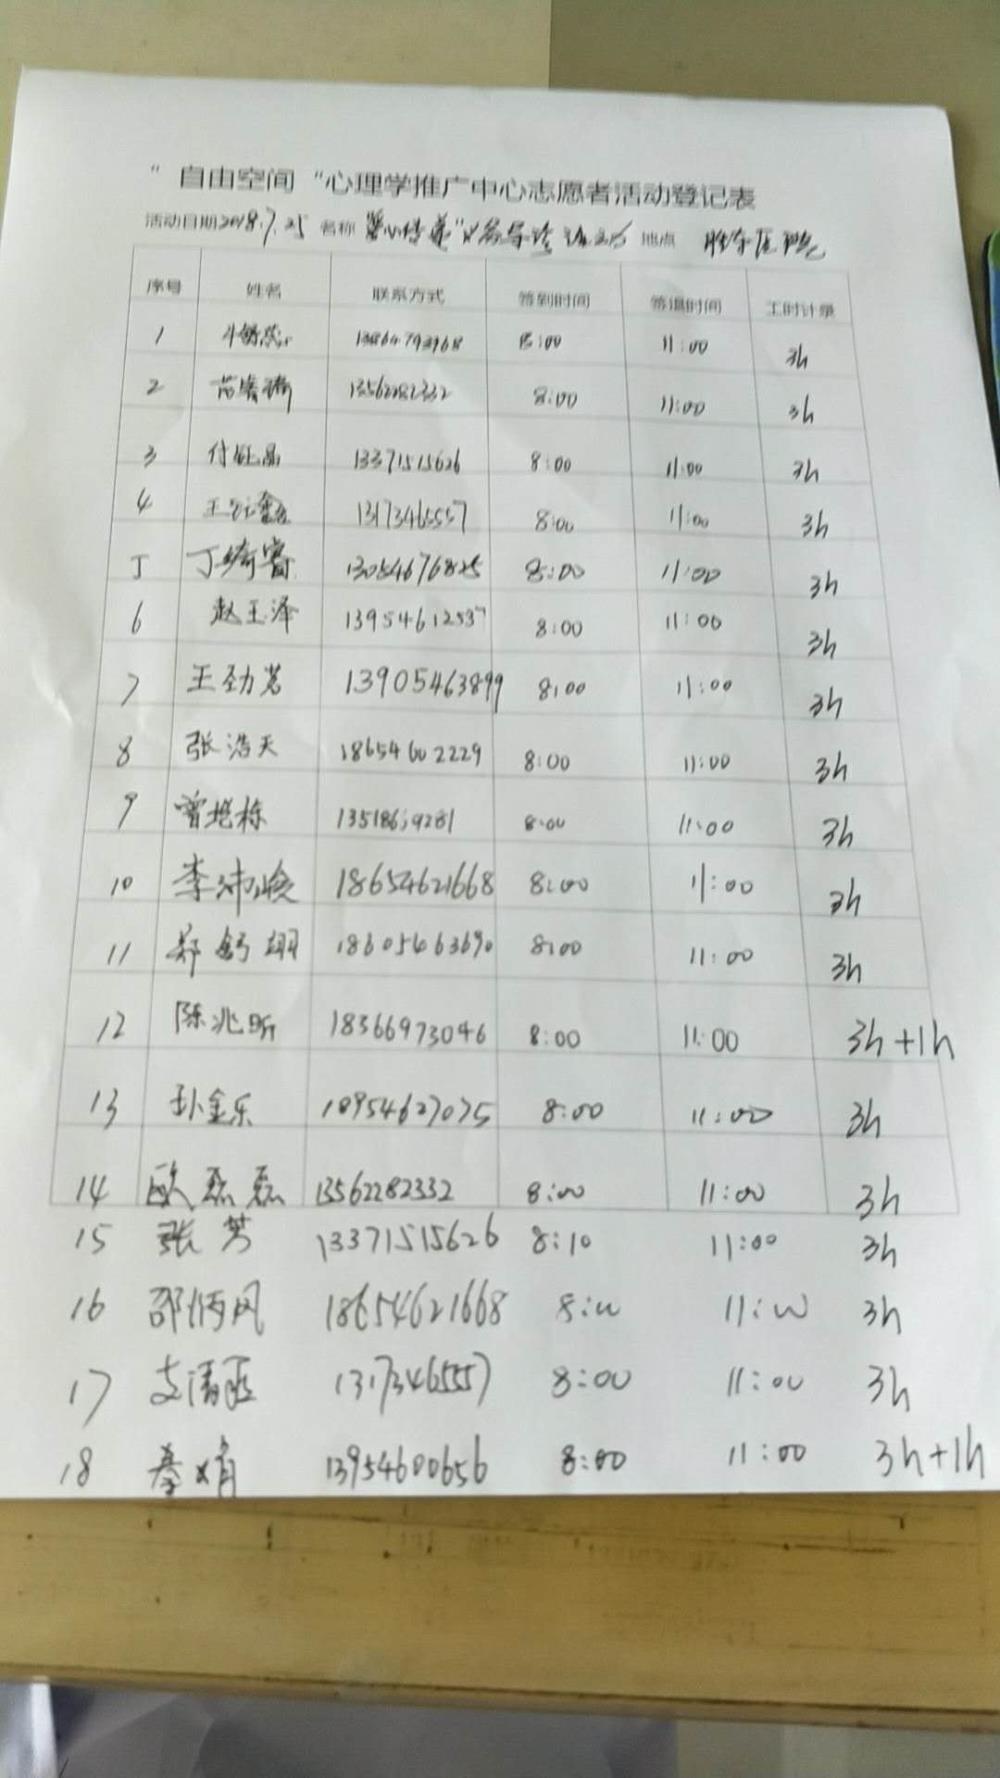 “自由空间“心理学推广中心志愿者活动登记表
活动日期2018.7.25 名称 地点
序号 姓名 联系方式 签到时间 签退时间 工时计录
1 8:00 11:00 3h
2 13562282332 8:00 11:00 3h
3 13371515626 8:00 11:00 3h
4 13173465557 8:00 11:00 3h
5 丁绮睿 13054676825 8:00 11:00 3h
6 赵玉泽 13954612537 8:00 11:00 3h
7 王劲茗 13905463899 8:00 11:00 3h
8 张浩天 18654602229 8:00 11:00 3h
9 8:00 11:00 3h
10 李沛峻 18654621668 8:00 11:00 3h
11 郑钧翊 18605463690 8:00 11:00 3h
12 陈兆昕 18366973046 8:00 11:00 3h+1h
13 孙金乐 18954627075 8:00 11:00 3h
14 欧磊磊 13562282332 8:00 11:00 3h
15 张芳 13371515626 8:10 11:00 3h
16 邵炳凤 18654621668 8:00 11:00 3h
17 13173465557 8:00 11:00 3h
18 秦娟 13954600656 8:00 11:00 3h+1h